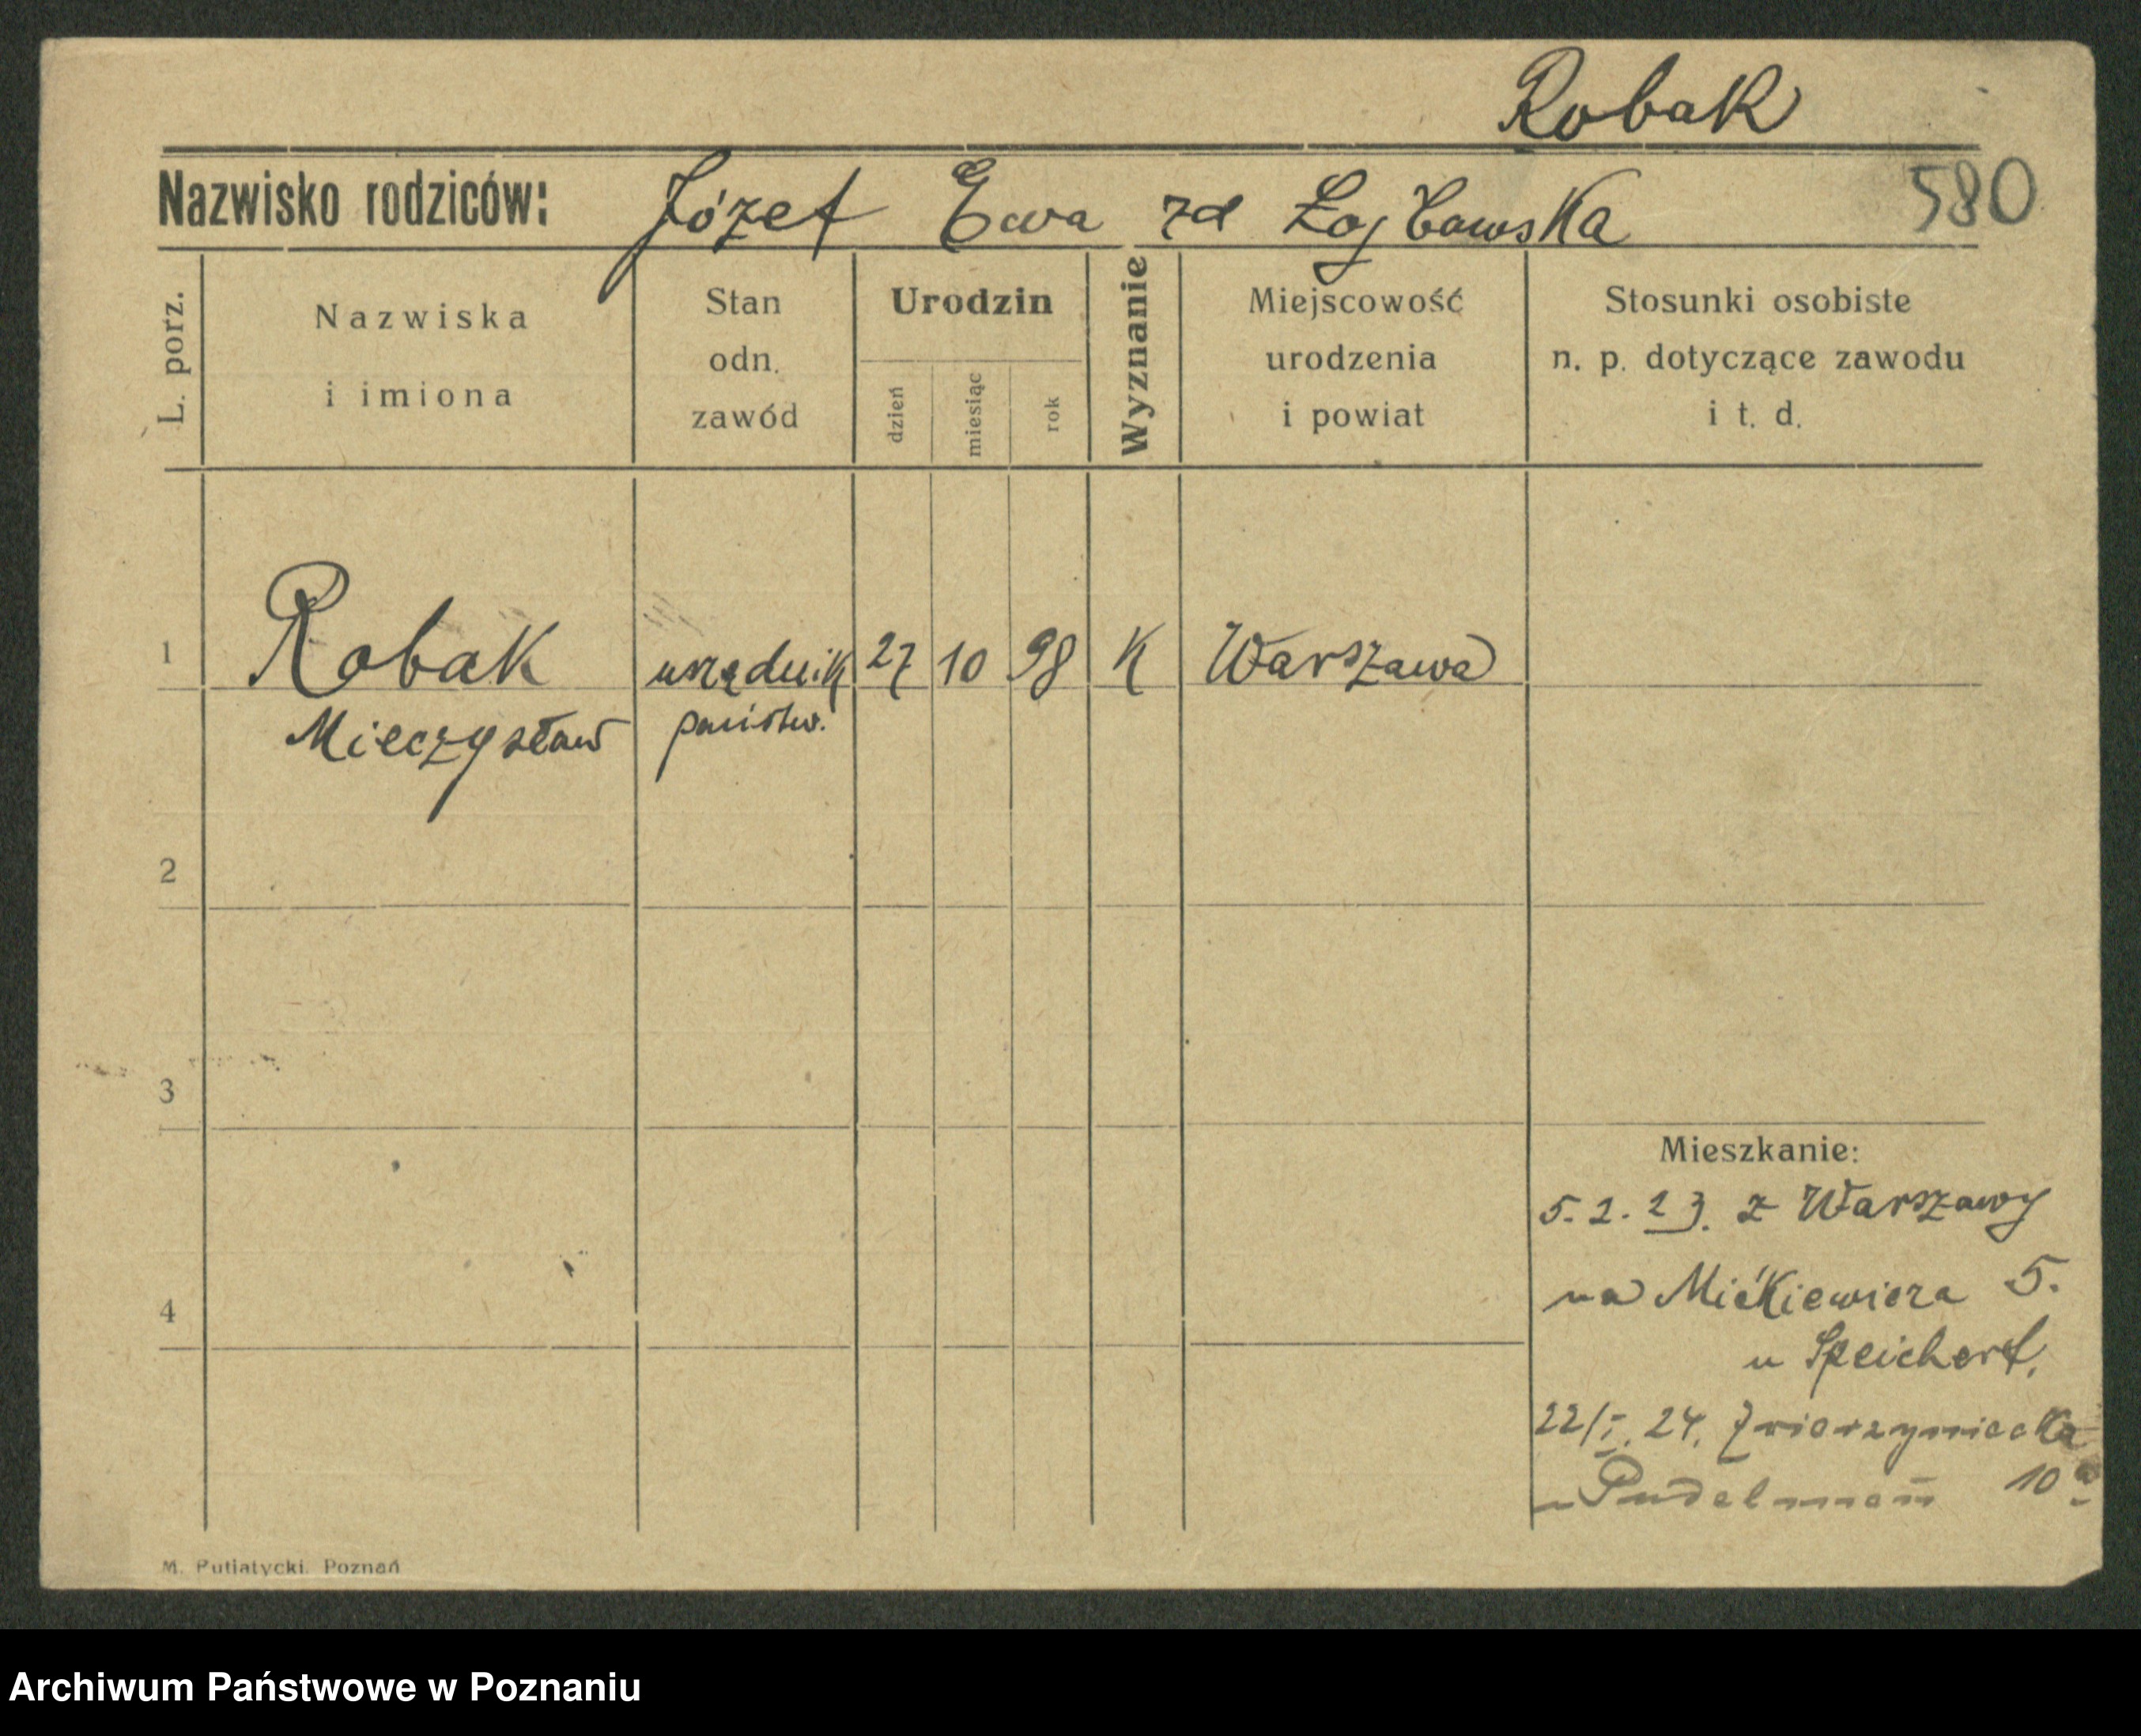 Robak
Nazwisko rodziców: Józef Ewa zd 580
L. porz.
Nazwiska i imiona
Stan odn. zawód
Urodzin
dzień
miesiąc
rok
Wyznanie
Miejscowość urodzenia i powiat
Stosunki osobiste n. p. dotyczące zawodu i t. d.
1 Robak urzędnik 27 10 98 K Warszawa
Mieczysław państw.
2
3
Mieszkanie:
5. 2. 23. z Warszawy
na Mickiewicza 5.
4
u Speichert.
22/I. 24. Zwierzyniecka
10a
M. Putiatycki, Poznań
Archiwum Państwowe w Poznaniu